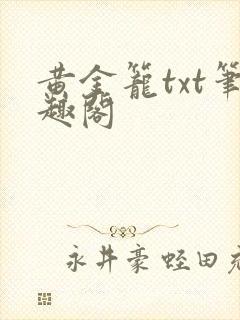 黄金籠txt筆
趣閣
永井豪 蛭田充